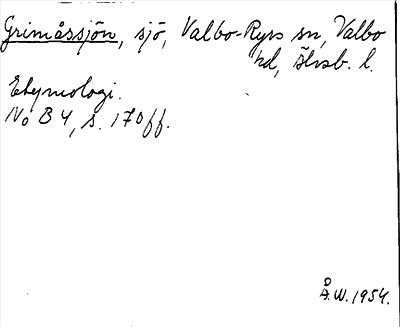 Grimåssjön, sjö, Valbo-Ryrs sn, Valbo
hd, Älvsb. l.
Etymologi.
NoB 4, s. 170ff.
Å.W. 1954.